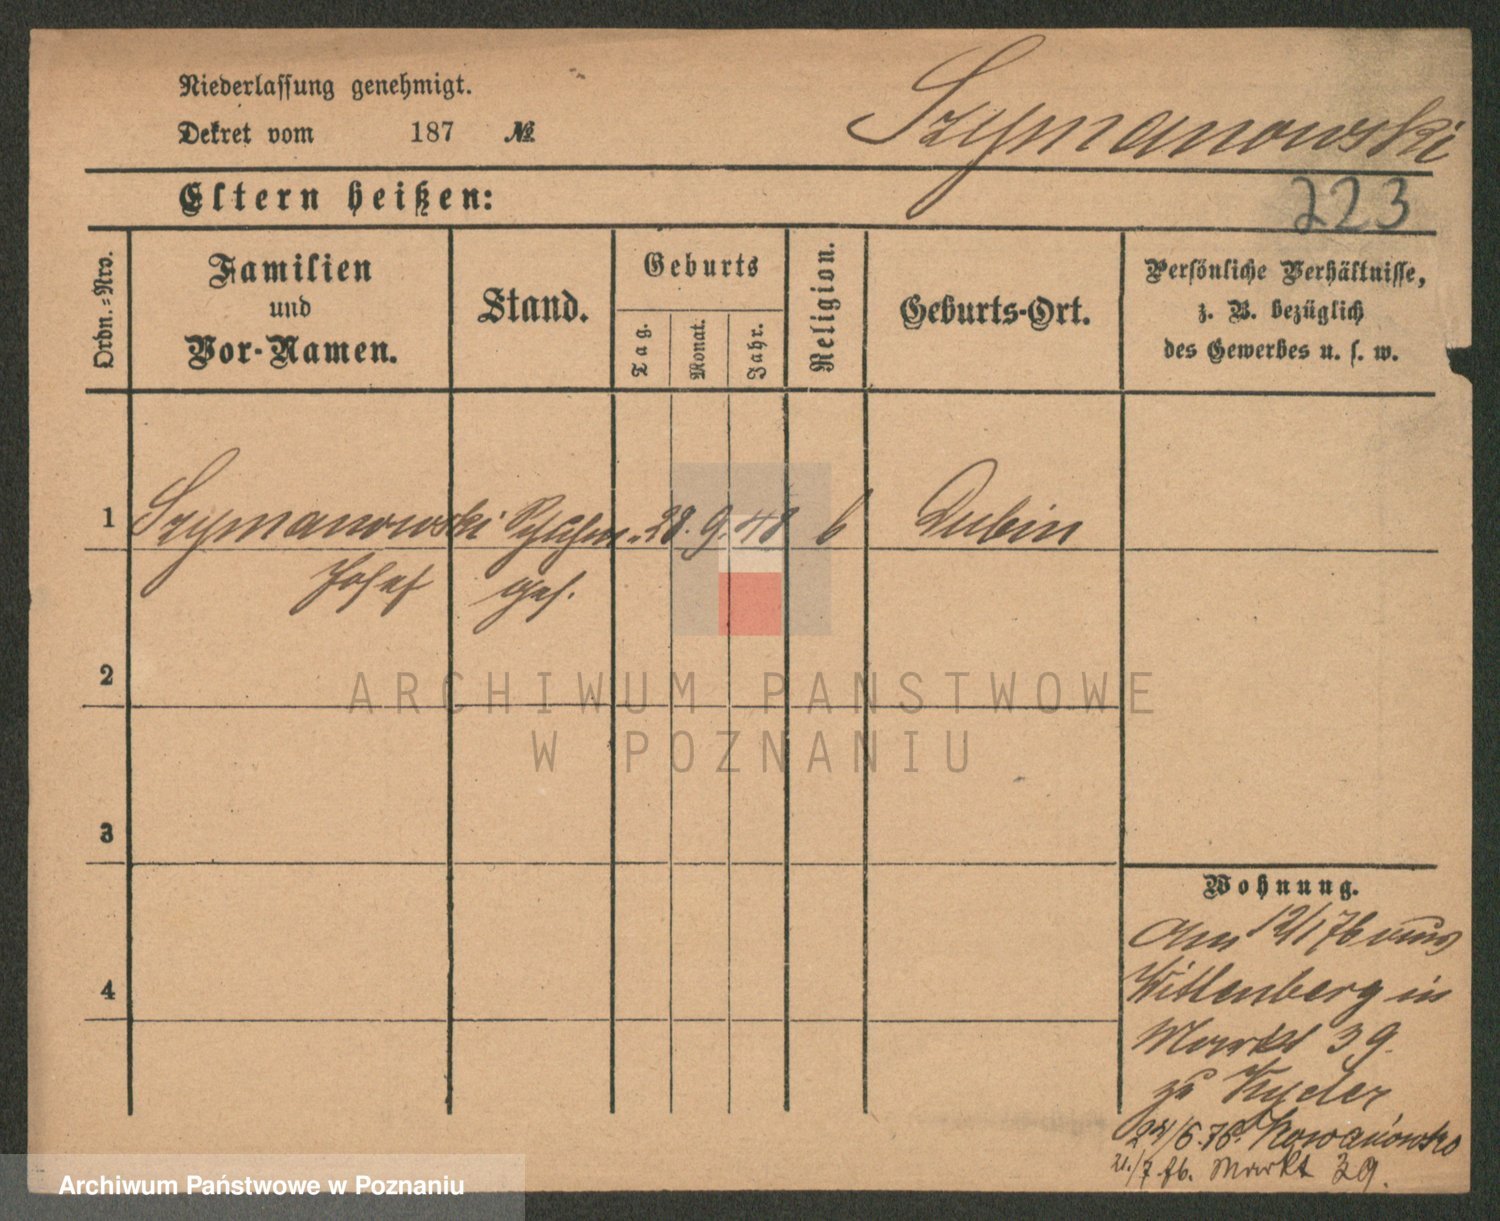 Niederlassung genehmigt.
Dekret vom 187 №
Szymanowski
Eltern heißen:
223
Ordn.-Nro.
Familien
und
Vor-Namen.
Stand.
Geburts
Tag.
Monat.
Jahr.
Religion.
Geburts-Ort.
Persönliche Verhältnisse,
z. B. bezüglich
des Gewerbes u. s. w.
1 Szymanowski 28. 9. 48 Dubin
Josef ges.
2
ARCHIWUM PAŃSTWOWE
W POZNANIU
3
Wohnung.
Am 12/1 76 aus
Wittenberg in
4
Markt 39.
zu
/6. 76. Kowanówko
/7. 76. Markt 39.
Archiwum Państwowe w Poznaniu